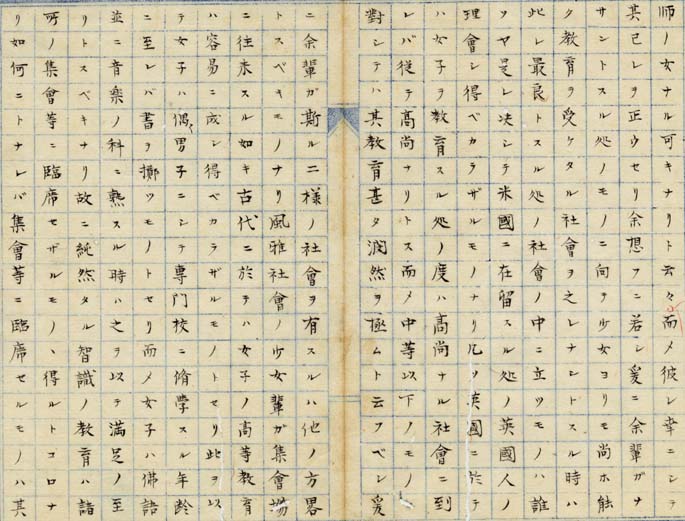 師ノ女ナル可キナリト云々而メ彼レ幸ニシテ
其己レヲ正ウセリ余想フニ若シ爰ニ余輩ガナ
サントスル処ノモノニ向テ少女ヨリモ尚ホ能
ク教育ヲ受ケタル社會ヲ之レナントスル時ハ
此レ最良トスル処ノ社會ノ中ニ立ツモノハ誰
ソヤ是レ决シテ米國ニ在留スル処ノ英國人ノ
理會シ得ベカラザルモノナリ凡ソ英國ニ於テ
ハ女子ヲ教育スル処ノ度ハ高尚ナル社會ニ到
レバ從テ高尚ナリトス而メ中等以下ノモノニ
對シテハ其教育甚タ濶然ヲ極ムト云フベシ爰
ニ余輩ガ斯ル二様ノ社會ヲ有スルハ他ノ方畧
トスベキモノナリ風雅社會ノ少女輩ガ集會場
ニ往来スル如キ古代ニ於テハ女子ノ高等教育
ハ容易ニ成シ得ベカラザルモノトセリ此ヲ以
テ女子ハ偶男子ニシテ専門校ニ脩學スル年齢
ニ至レバ書ヲ擲ツモノトセリ而メ女子ハ佛語
並ニ音楽ノ科ニ熟スル時ハ之ヲ以テ満足ノ至
リトスベキナリ故ニ純然タル智識ノ教育ハ諸
所ノ集會等ニ臨席セザルモノヽ得ルトコロナ
リ如何ニトナレバ集會等ニ臨席セルモノハ其